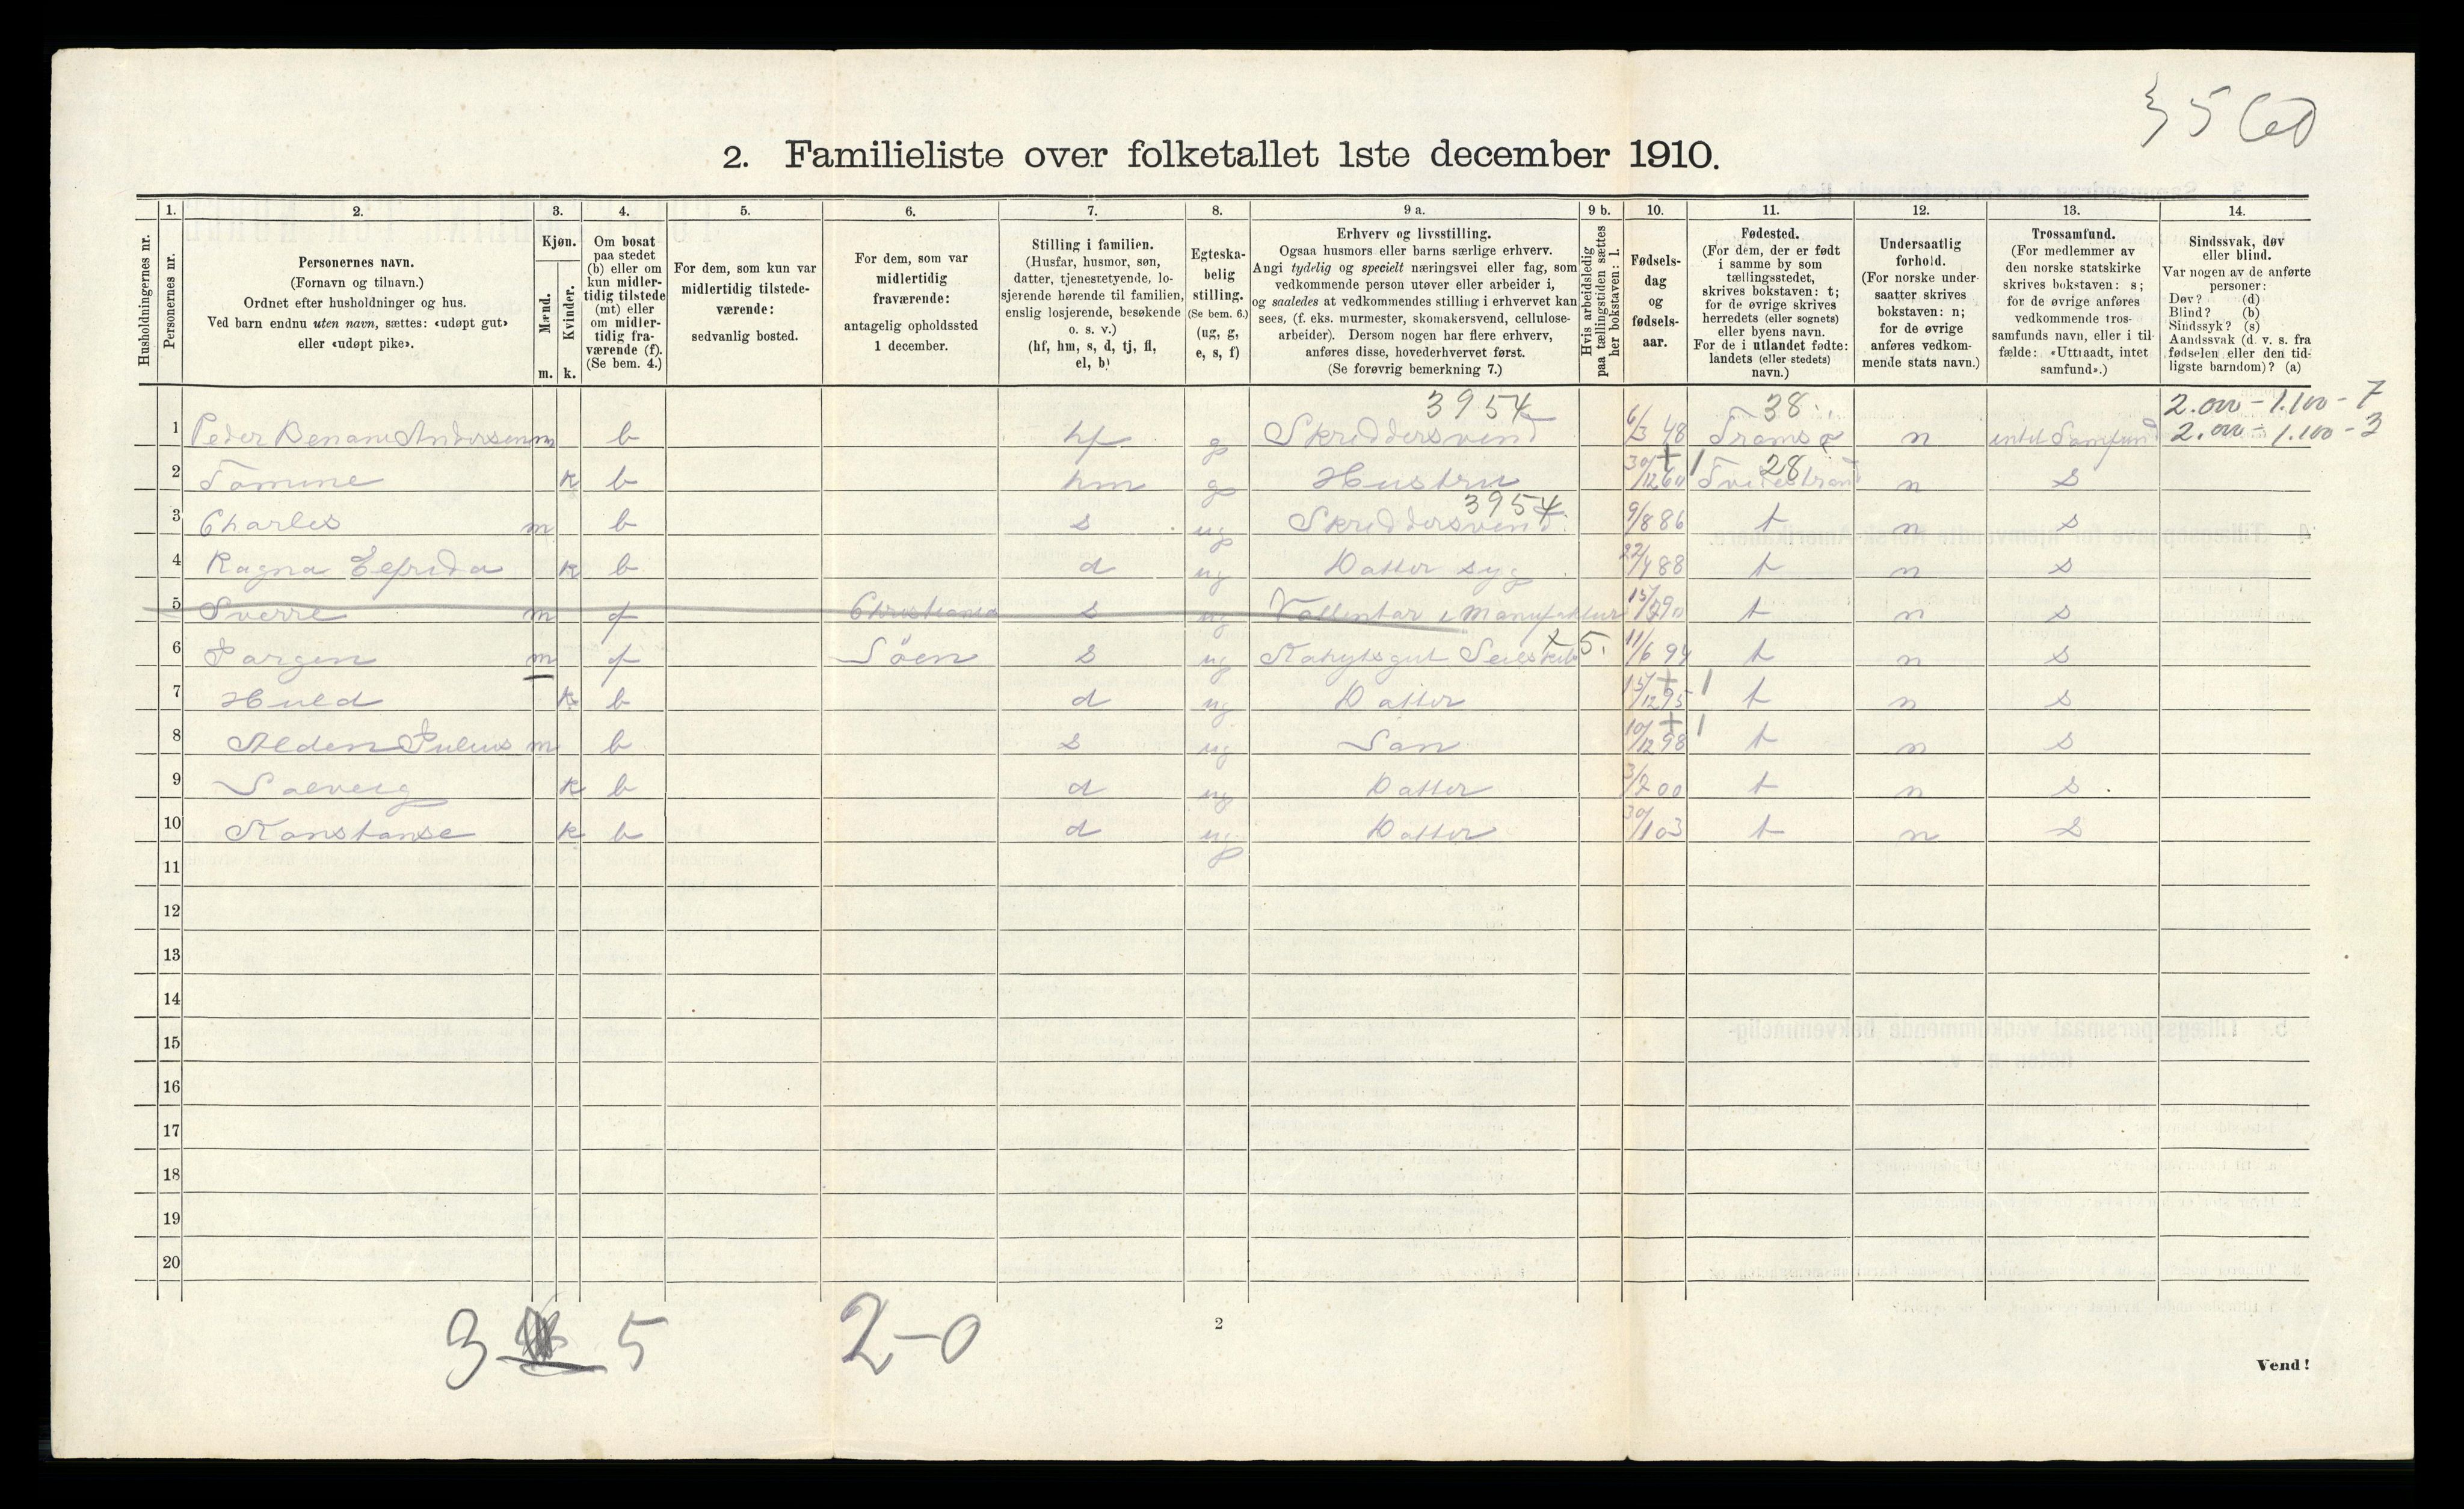 3560
2. Familieliste over folketallet 1ste december 1910.
1. 2. 3. 4. 5. 6. 7. 8. 9 a. 9 b. 10. 11. 12. 13. 14.
Husholdningernes nr.
Personernes nr.
Personernes navn.
(Fornavn og tilnavn.)
Ordnet efter husholdninger og hus.
Ved barn endnu uten navn, sættes: «udøpt gut»
eller «udøpt pike».
Kjøn.
Mænd.
Kvinder.
m. k.
Om bosat
paa stedet
(b) eller om
kun midler-
tidig tilstede
(mt) eller
om midler-
tidig fra-
værende (f).
(Se bem. 4.)
For dem, som kun var
midlertidig tilstede-
værende:
sedvanlig bosted.
For dem, som var
midlertidig
fraværende:
antagelig opholdssted
1 december.
Stilling i familien.
(Husfar, husmor, søn,
datter, tjenestetyende, lo-
sjerende hørende til familien,
enslig losjerende, besøkende
o. s. v.)
(hf, hm, s, d, tj, fl,
el, b)
Egteska-
belig
stilling.
(Se bem. 6.)
(ug, g,
e, s, f)
Erhverv og livsstilling.
Ogsaa husmors eller barns særlige erhverv.
Angi tydelig og specielt næringsvei eller fag, som
vedkommende person utøver eller arbeider i,
og saaledes at vedkommendes stilling i erhvervet kan
sees, (f. eks. murmester, skomakersvend, cellulose-
arbeider). Dersom nogen har flere erhverv,
anføres disse, hovederhvervet først.
(Se forøvrig bemerkning 7.)
Hvis arbeidsledig
paa tællingstiden sættes
her bokstaven: l.
Fødsels-
dag
og
fødsels-
aar.
Fødested.
(For dem, der er født
i samme by som
tællingsstedet,
skrives bokstaven: t;
for de øvrige skrives
herredets (eller sognets)
eller byens navn.
For de i utlandet fødte:
landets (eller stedets)
navn.)
Undersaatlig
forhold.
(For norske under-
saatter skrives
bokstaven: n;
for de øvrige
anføres vedkom-
mende stats navn.)
Trossamfund.
(For medlemmer av
den norske statskirke
skrives bokstaven: s;
for de øvrige anføres
vedkommende tros-
samfunds navn, eller i til-
fælde: «Uttraadt, intet
samfund».)
Sindssvak, døv
eller blind.
Var nogen av de anførte
personer:
Døv? (d)
Blind? (b)
Sindssyk? (s)
Aandssvak (d. v. s. fra
fødselen eller den tid-
ligste barndom)? (a)
3954 38 2.000 - 1.100 - 7
1 Peder Benoni Andersen m b hf g Skreddersvend 6/3 48 Tromsø n intet Samfund 2.000 - 1.100 - 3
28
2 Tomine k b hm g Hustru 30/12 60 + 1 Tvedestrand n s
3954
3 Charles m b s ug Skreddersvend. 9/8 86 t n s
4 Ragna Elfrida k b d ug Datter syg 22/4 88 t n s
5 Sverre m f Christiania s ug i Manufaktur t n s
6 Jørgen m f Söen s ug Kahytsgut Seilskib x 5. 11/6 94 t n s
7 Huld k b d ug Datter 15/12 95 + 1 t n s
8 Alden Julius m b s ug Søn 10/12 98 + 1 t n s
9 Solveig k b d ug Datter 3/7 00 t n s
10 Konstanse k b d ug Datter 30/1 03 t n s
11
12
13
14
15
16
17
18
19
20
3 5 2-0
2
Vend!